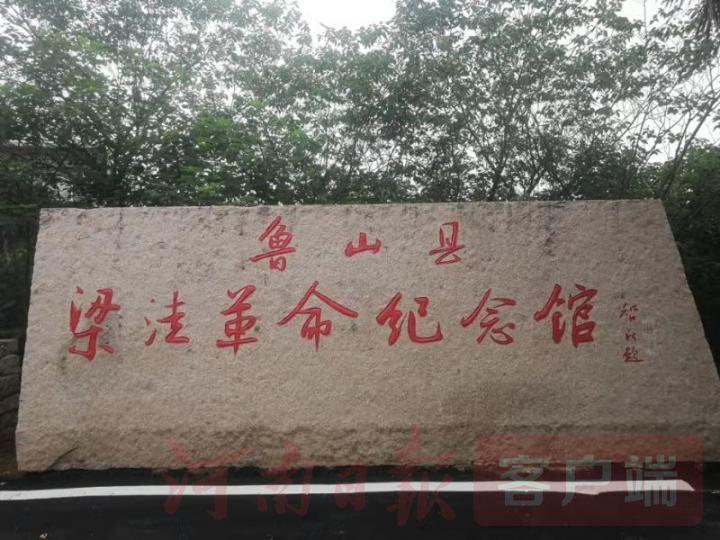 鲁山县
梁洼革命纪念馆
河南日报 客户端